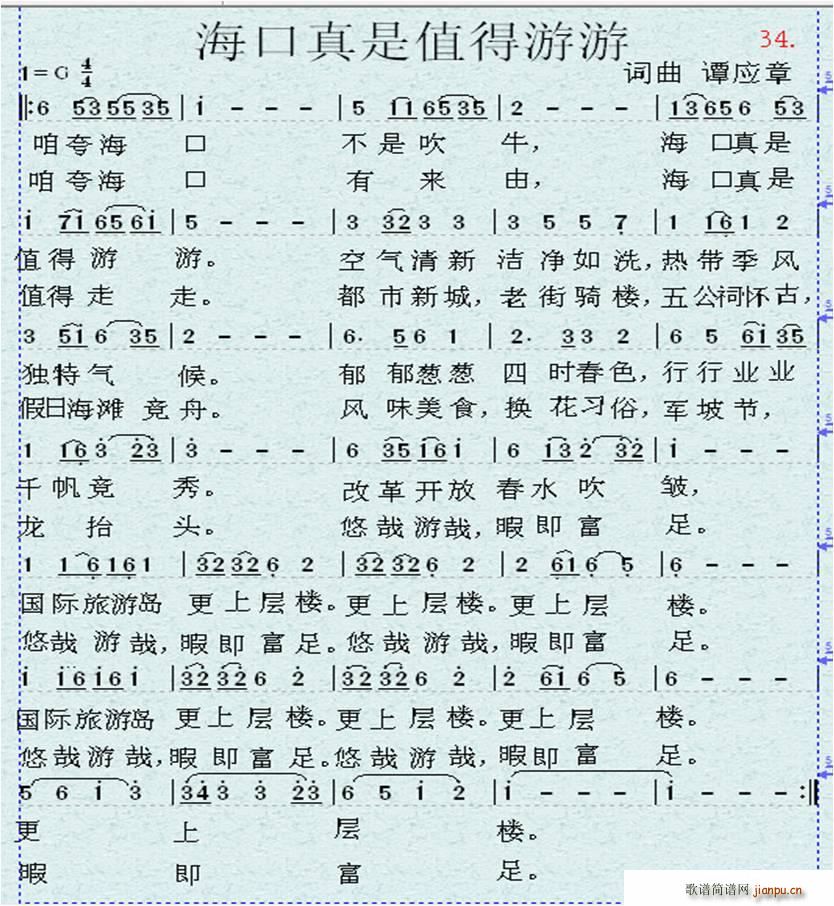 海口真是值得游游
34.
1=G 4/4
词曲 谭应章
‖:6 535535 | i - - - | 5 116535 | 2 - - - | 13656 53
咱夸海 口 不是吹 牛， 海口真是
咱夸海 口 有来 由， 海口真是
i 7i656i | 5 - - - | 3 323 3 | 3 5 5 7 | 1 161 2
值得游 游。 空气清新 洁净如洗，热带季风
值得走 走。 都市新城，老街骑楼，五公祠怀古，
3 5i6 35 | 2 - - - | 6· 56 1 | 2· 33 2 | 6 5 6i35
独特气 候。 郁郁葱葱 四时春色，行行业业
假日海滩竞舟。 风味美食，换花习俗，军坡节，
1 163 23 | 3 - - - | 6 35i6i | 6 i32 32 | i - - -
千帆竞 秀。 改革开放 春水吹 皱，
龙抬 头。 悠哉游哉，暇即富 足。
1 16161 | 32326 2 | 32326 2 | 2 616 5 | 6 - - -
国际旅游岛 更上层楼。更上层楼。更上层 楼。
悠哉游哉，暇即富足。悠哉游哉，暇即富 足。
i i6i6i | 32326 2 | 32326 2 | 2 6i6 5 | 6 - - -
国际旅游岛 更上层楼。更上层楼。更上层 楼。
悠哉游哉，暇即富足。悠哉游哉，暇即富 足。
5 6 i 3 | 343 3 23 | 6 5 i 2 | i - - - | i - - - :‖
更 上 层 楼。
暇 即 富 足。
歌谱简谱网 jianpu.cn